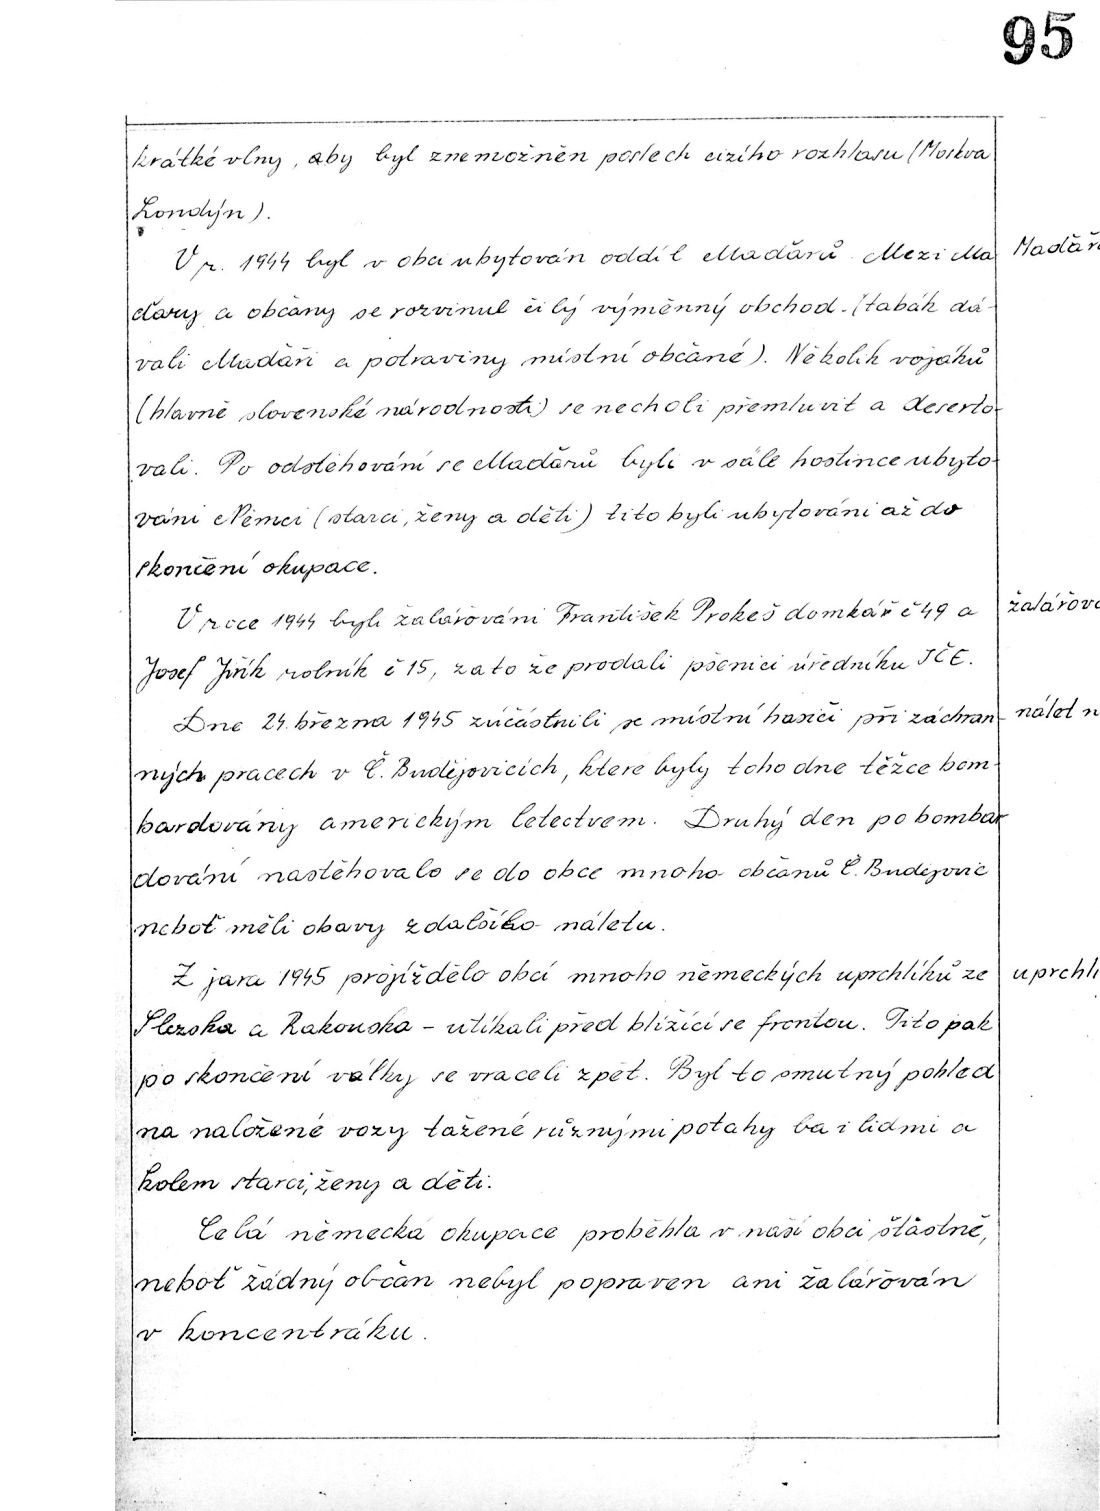 95
krátké vlny, aby byl znemožněn poslech cizího rozhlasu (Moskva
Londýn).
V r. 1944 byl v obci ubytován oddíl Maďarů. Mezi Ma
Maďař
ďary a občany se rozvinul čilý výměnný obchod. (tabák dá-
vali Maďaři a potraviny místní občané). Několik vojáků
(hlavně slovenské národnosti) se nechali přemluvit a deserto-
vali. Po odstěhování se Maďarů byli v sále hostince ubyto-
váni Němci (starci, ženy a děti) tito byli ubytováni až do
skončení okupace.
V roce 1944 byli žalářováni František Prokeš domkář č 49 a
žalářová
Josef Jiřík rolník č 15, za to že prodali pšenici úředníku JČE.
Dne 24. března 1945 zúčástnili se místní hasiči při záchran-
nálet n
ných pracech v Č. Budějovicích, ktere byly toho dne těžce bom-
bardovány americkým letectvem. Druhý den po bombar
dování nastěhovalo se do obce mnoho občanů Č. Budějovic
neboť měli obavy z dalšího náletu.
Z jara 1945 projíždělo obcí mnoho německých uprchlíků ze
uprchlí
Slezska a Rakouska - utíkali před blížící se frontou. Tito pak
po skončení války se vraceli zpět. Byl to smutný pohled
na naložené vozy tažené různými potahy ba i lidmi a
kolem starci, ženy a děti.
Celá německá okupace proběhla v naší obci šťastně,
neboť žádný občan nebyl popraven ani žalářován
v koncentráku.